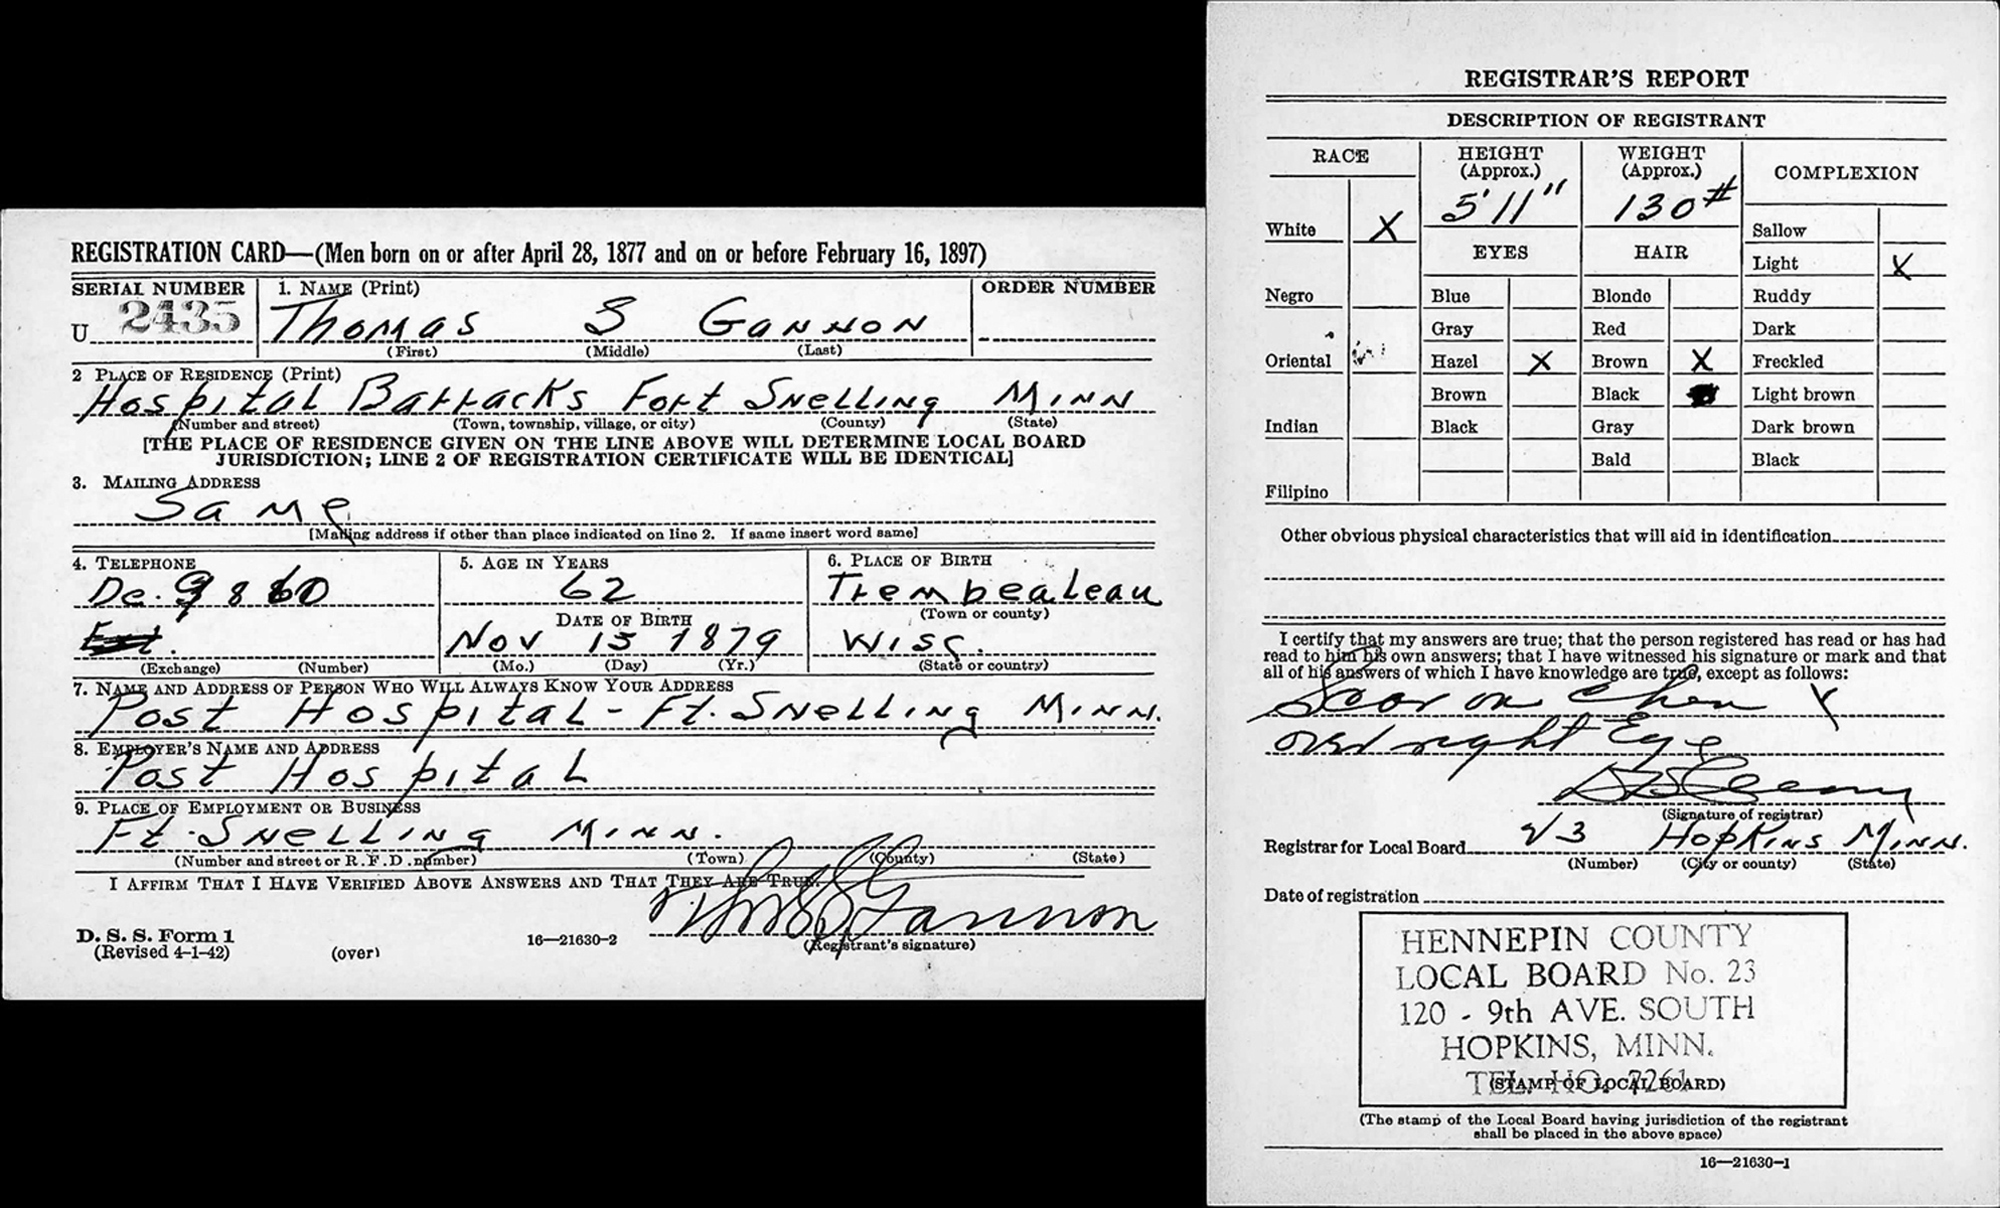 REGISTRATION CARD—(Men born on or after April 28, 1877 and on or before February 16, 1897)
SERIAL NUMBER 1. NAME (Print) ORDER NUMBER
U 2435 Thomas S Gannon
(First) (Middle) (Last)
2 PLACE OF RESIDENCE (Print)
Hospital Barracks Fort Snelling Minn
(Number and street) (Town, township, village, or city) (County) (State)
[THE PLACE OF RESIDENCE GIVEN ON THE LINE ABOVE WILL DETERMINE LOCAL BOARD
JURISDICTION; LINE 2 OF REGISTRATION CERTIFICATE WILL BE IDENTICAL]
3. MAILING ADDRESS
Same
[Mailing address if other than place indicated on line 2. If same insert word same]
4. TELEPHONE 5. AGE IN YEARS 6. PLACE OF BIRTH
De. 9860 62 Trembealeau
DATE OF BIRTH (Town or county)
Ext. Nov 15 1879 Wisc.
(Exchange) (Number) (Mo.) (Day) (Yr.) (State or country)
7. NAME AND ADDRESS OF PERSON WHO WILL ALWAYS KNOW YOUR ADDRESS
Post Hospital - Ft. Snelling Minn.
8. EMPLOYER'S NAME AND ADDRESS
Post Hospital
9. PLACE OF EMPLOYMENT OR BUSINESS
Ft. Snelling Minn.
(Number and street or R. F. D. number) (Town) (County) (State)
I AFFIRM THAT I HAVE VERIFIED ABOVE ANSWERS AND THAT THEY ARE TRUE.
Thos S Gannon
D. S. S. Form 1
(Revised 4-1-42) (over) 16—21630-2 (Registrant's signature)
REGISTRAR'S REPORT
DESCRIPTION OF REGISTRANT
RACE HEIGHT (Approx.) WEIGHT (Approx.) COMPLEXION
5'11" 130#
White X Sallow
EYES HAIR
Light X
Negro Blue Blonde Ruddy
Gray Red Dark
Oriental Hazel X Brown X Freckled
Brown Black Light brown
Indian Black Gray Dark brown
Bald Black
Filipino
Other obvious physical characteristics that will aid in identification
I certify that my answers are true; that the person registered has read or has had
read to him his own answers; that I have witnessed his signature or mark and that
all of his answers of which I have knowledge are true, except as follows:
Scar on
over right Eye
(Signature of registrar)
Registrar for Local Board 23 Hopkins Minn.
(Number) (City or county) (State)
Date of registration
HENNEPIN COUNTY
LOCAL BOARD No. 23
120 - 9th AVE. SOUTH
HOPKINS, MINN.
TEL. HO. 7261
(STAMP OF LOCAL BOARD)
(The stamp of the Local Board having jurisdiction of the registrant
shall be placed in the above space)
16—21630-1